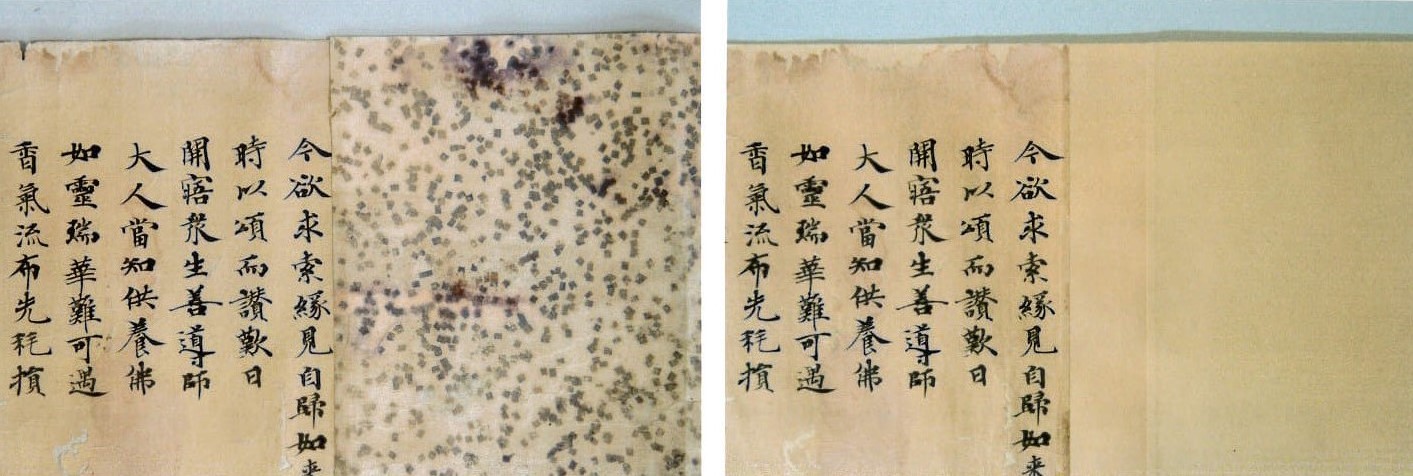 今欲求索緣見自歸如来
時以頌而讚歎曰
開寤衆生善導師
大人當知供養佛
如靈瑞華難可遇
香氣流布先秏損
今欲求索緣見自歸如来
時以頌而讚歎曰
開寤衆生善導師
大人當知供養佛
如靈瑞華難可遇
香氣流布先秏損